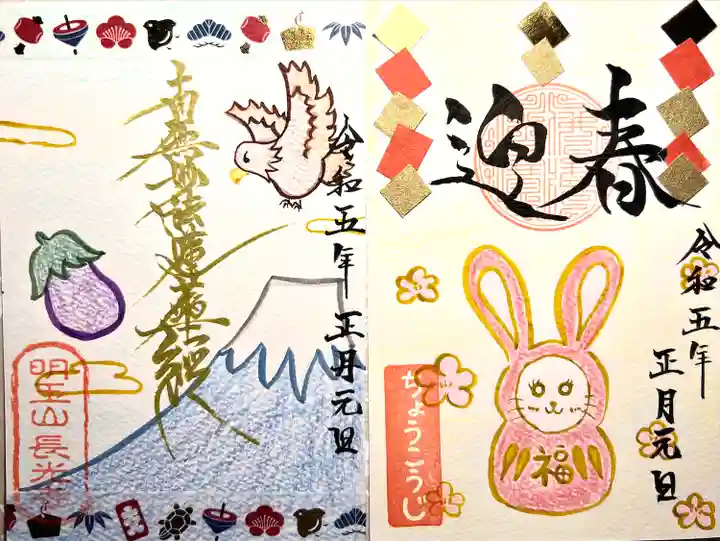 迎春
令和五年
正月元旦
福
ちょうこうじ
令和五年 正月元旦
南無妙法蓮華経
明王山長光